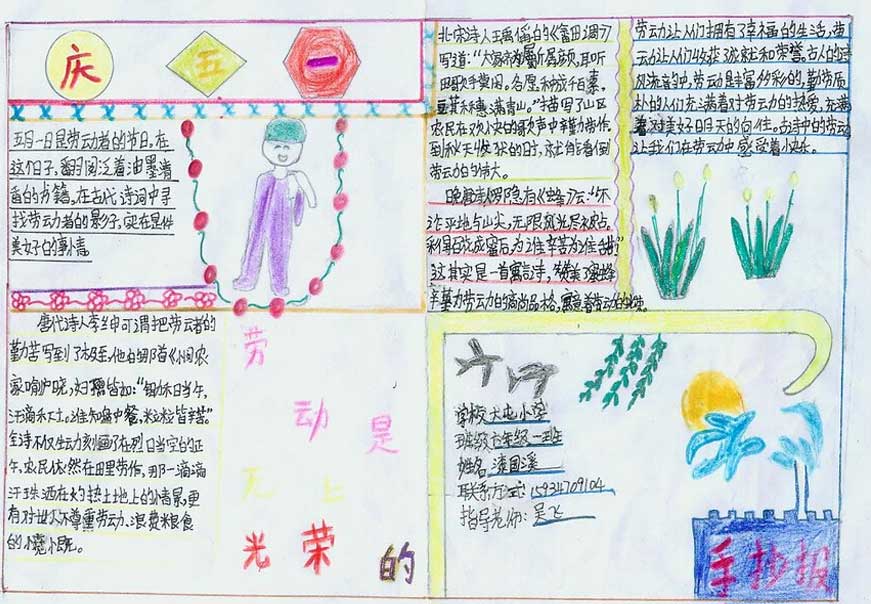 庆 五 一
五月一日是劳动者的节日,在
这个日子,翻阅泛着油墨清
香的书籍,在古代诗词中寻
找劳动者的影子,实在是件
美好的事情。
唐代诗人李绅可谓把劳动者的
勤苦写到了极至,他的那首《悯农》
家喻户晓,妇孺皆知:"锄禾日当午,
汗滴禾下土。谁知盘中餐,粒粒皆辛苦。"
全诗不仅生动刻画了在烈日当空的正
午,农民依然在田里劳作,那一滴滴
汗珠洒在灼热土地上的情景,更
有对世人不尊重劳动、浪费粮食
的
劳
动 是
无 上
光 荣 的
北宋诗人王禹偁的《畲田调》
写道:
田歌
豆萁禾穗满青山。"描写了山区
农民在欢小中的歌声中辛勤劳作,
到秋天
劳动的伟大。
晚唐诗人罗隐有《蜂》云:"不
论平地与山尖,无限风光尽被占。
采得百花成蜜后,为谁辛苦为谁甜"
这其实是一首寓言诗,赞美了蜜蜂
辛勤劳动的高尚品格,
劳动让人们拥有了幸福的生活,劳
动让人们收获了成就和荣誉。古人的诗
风流音中,劳动是丰富多彩的,勤劳质
朴的人们充满着对劳动的热爱,充满
着对美好明天的向往。古诗中的劳动
让我们在劳动中感受着快乐。
学校 大屯小学
班级 六年级一班
姓名
联系方式: 15934709104
指导老师: 吴飞
手抄报